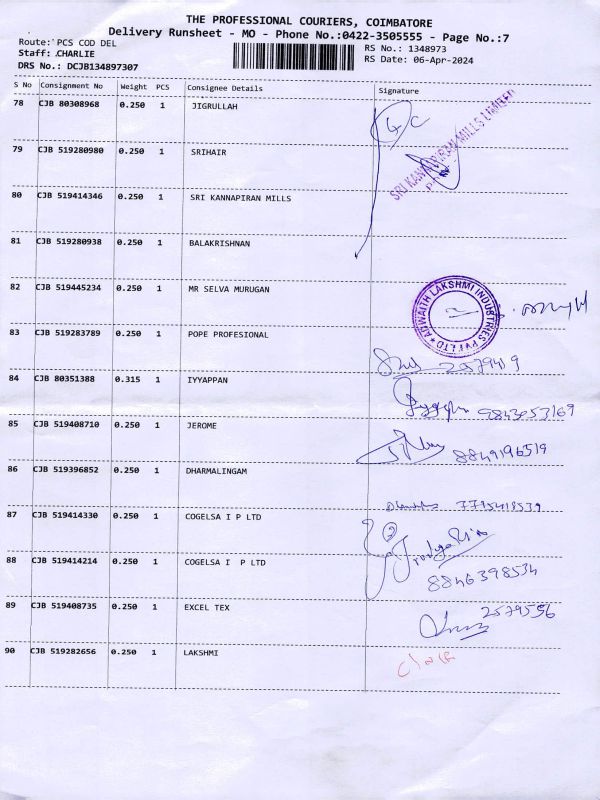 THE PROFESSIONAL COURIERS, COIMBATORE
Delivery Runsheet - MO - Phone No.:0422-3505555 - Page No.:7
Route: PCS COD DEL
RS No.: 1348973
Staff: .CHARLIE
RS Date: 06-Apr-2024
DRS No.: DCJB134897307
S No Consignment No Weight PCS Consignee Details Signature
78 CJB 80308968 0.250 1 JIGRULLAH
SRI KANNAPIRAN MILLS LIMITED
79 CJB 519280980 0.250 1 SRIHAIR
80 CJB 519414346 0.250 1 SRI KANNAPIRAN MILLS
81 CJB 519280938 0.250 1 BALAKRISHNAN
82 CJB 519445234 0.250 1 MR SELVA MURUGAN
ADWAITH LAKSHMI INDUSTRIES PVT LTD
83 CJB 519283789 0.250 1 POPE PROFESIONAL
2579419
84 CJB 80351388 0.315 1 IYYAPPAN
9843053169
85 CJB 519408710 0.250 1 JEROME
8849196519
86 CJB 519396852 0.250 1 DHARMALINGAM
7795418539
87 CJB 519414330 0.250 1 COGELSA I P LTD
88 CJB 519414214 0.250 1 COGELSA I P LTD
8846398534
89 CJB 519408735 0.250 1 EXCEL TEX
2579556
90 CJB 519282656 0.250 1 LAKSHMI